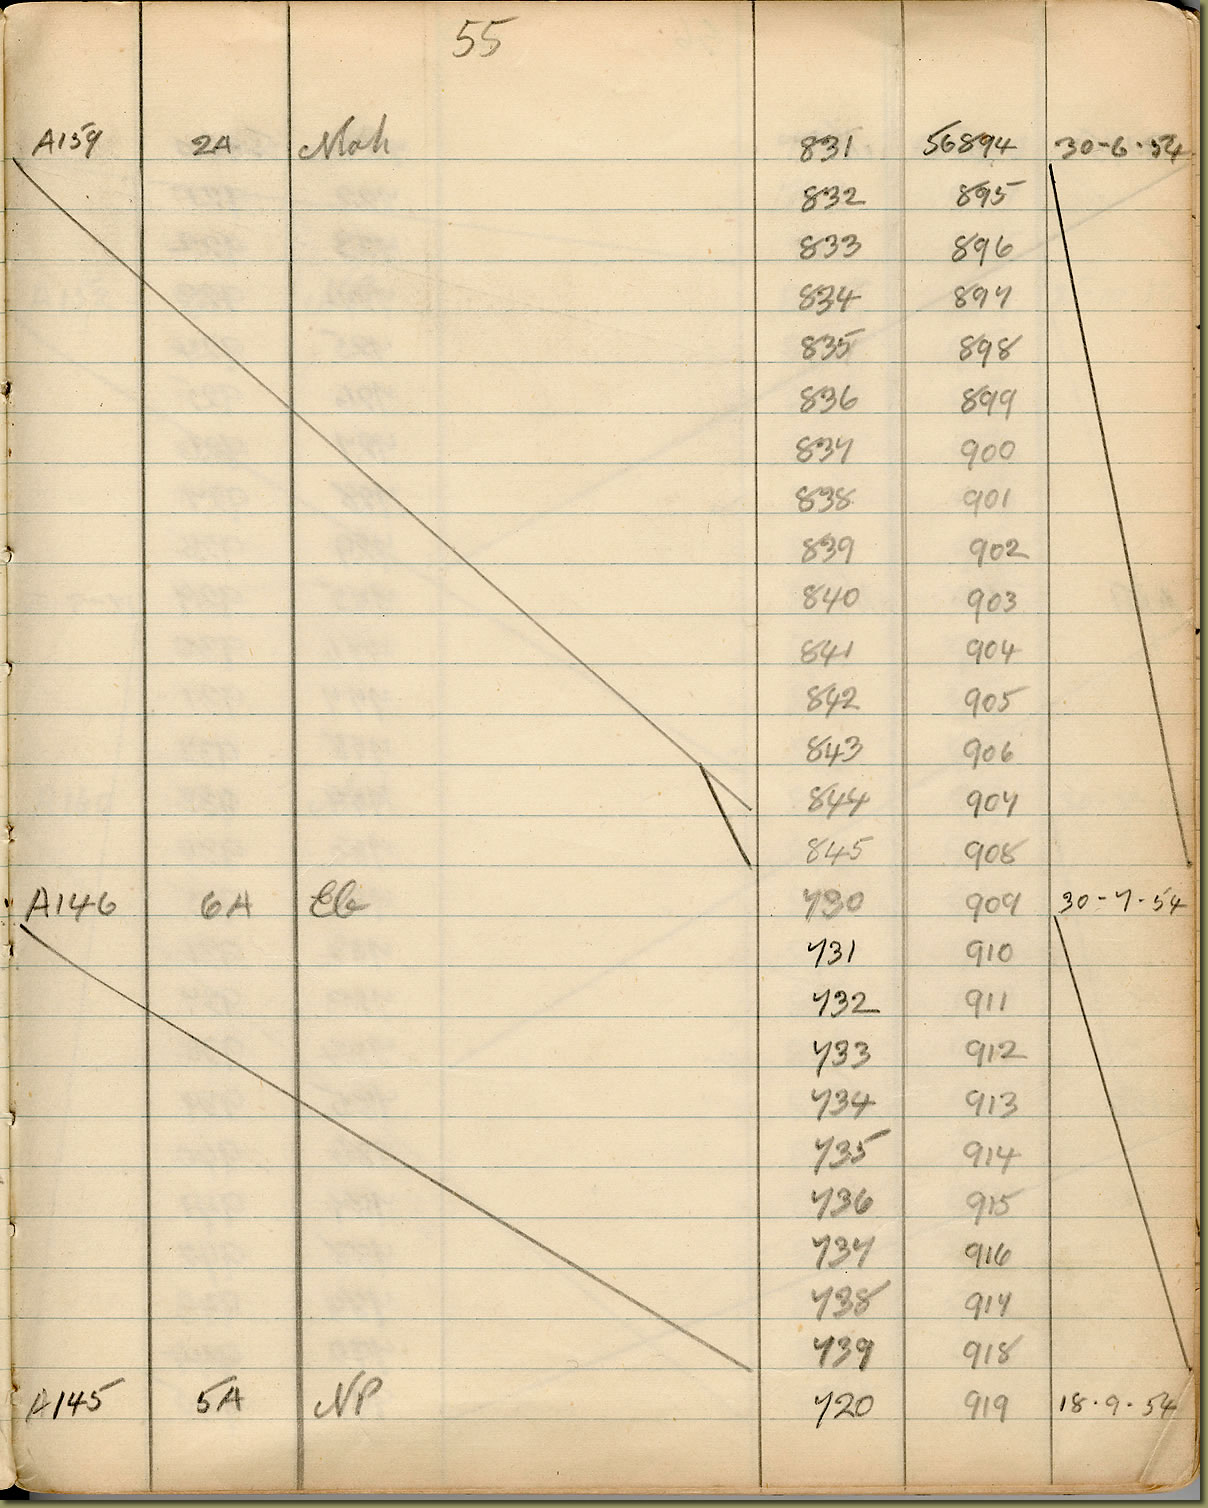 55
A159 2A Mah 831 56894 30-6-54
832 895
833 896
834 897
835 898
836 899
837 900
838 901
839 902
840 903
841 904
842 905
843 906
844 907
845 908
A146 6A 730 909 30-7-54
731 910
732 911
733 912
734 913
735 914
736 915
737 916
738 917
739 918
A145 5A NP 720 919 18.9.54